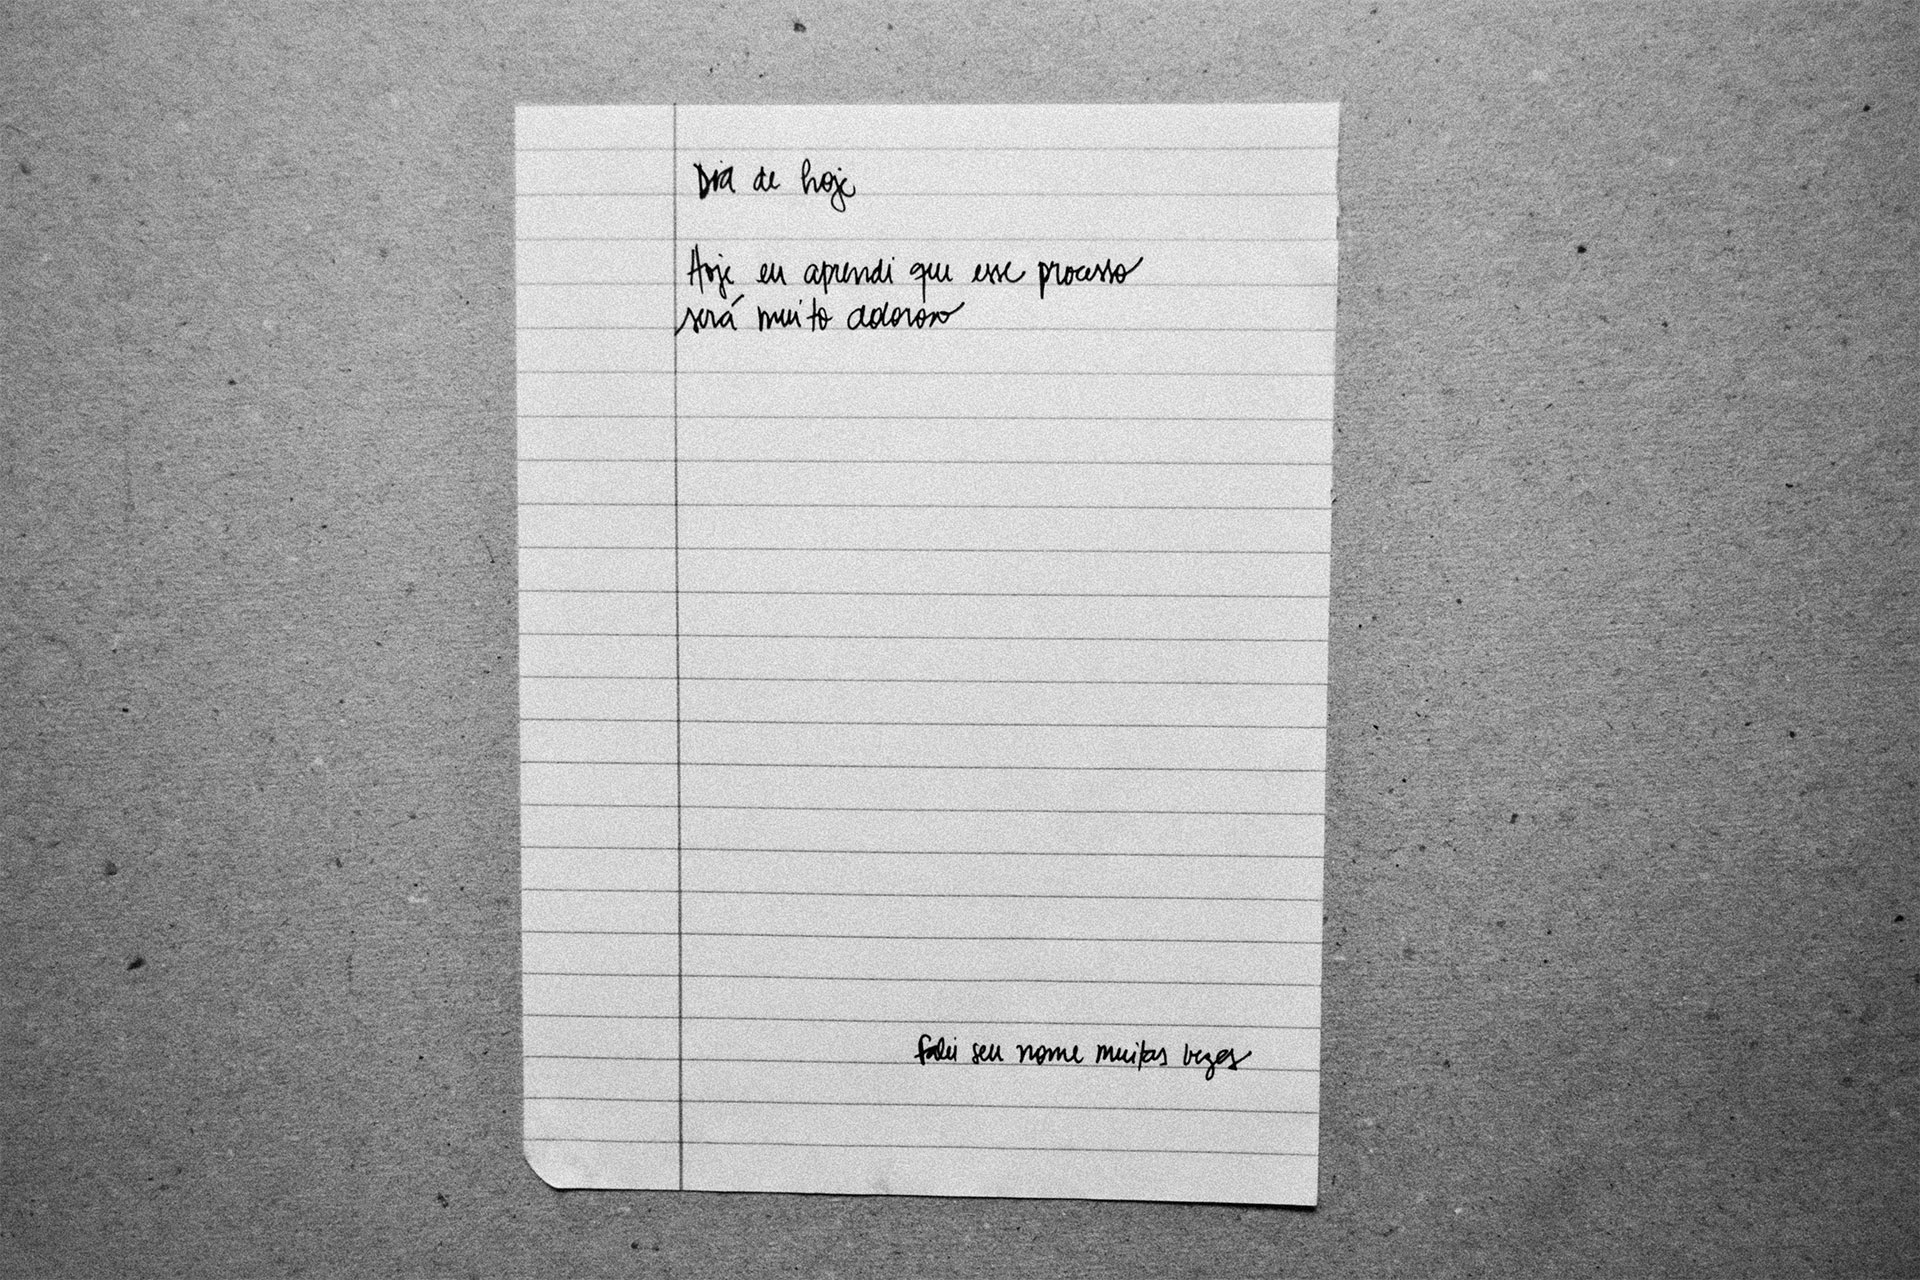 Dia de hoje
Hoje eu aprendi que esse processo
será muito doloroso
falei seu nome muitas vezes